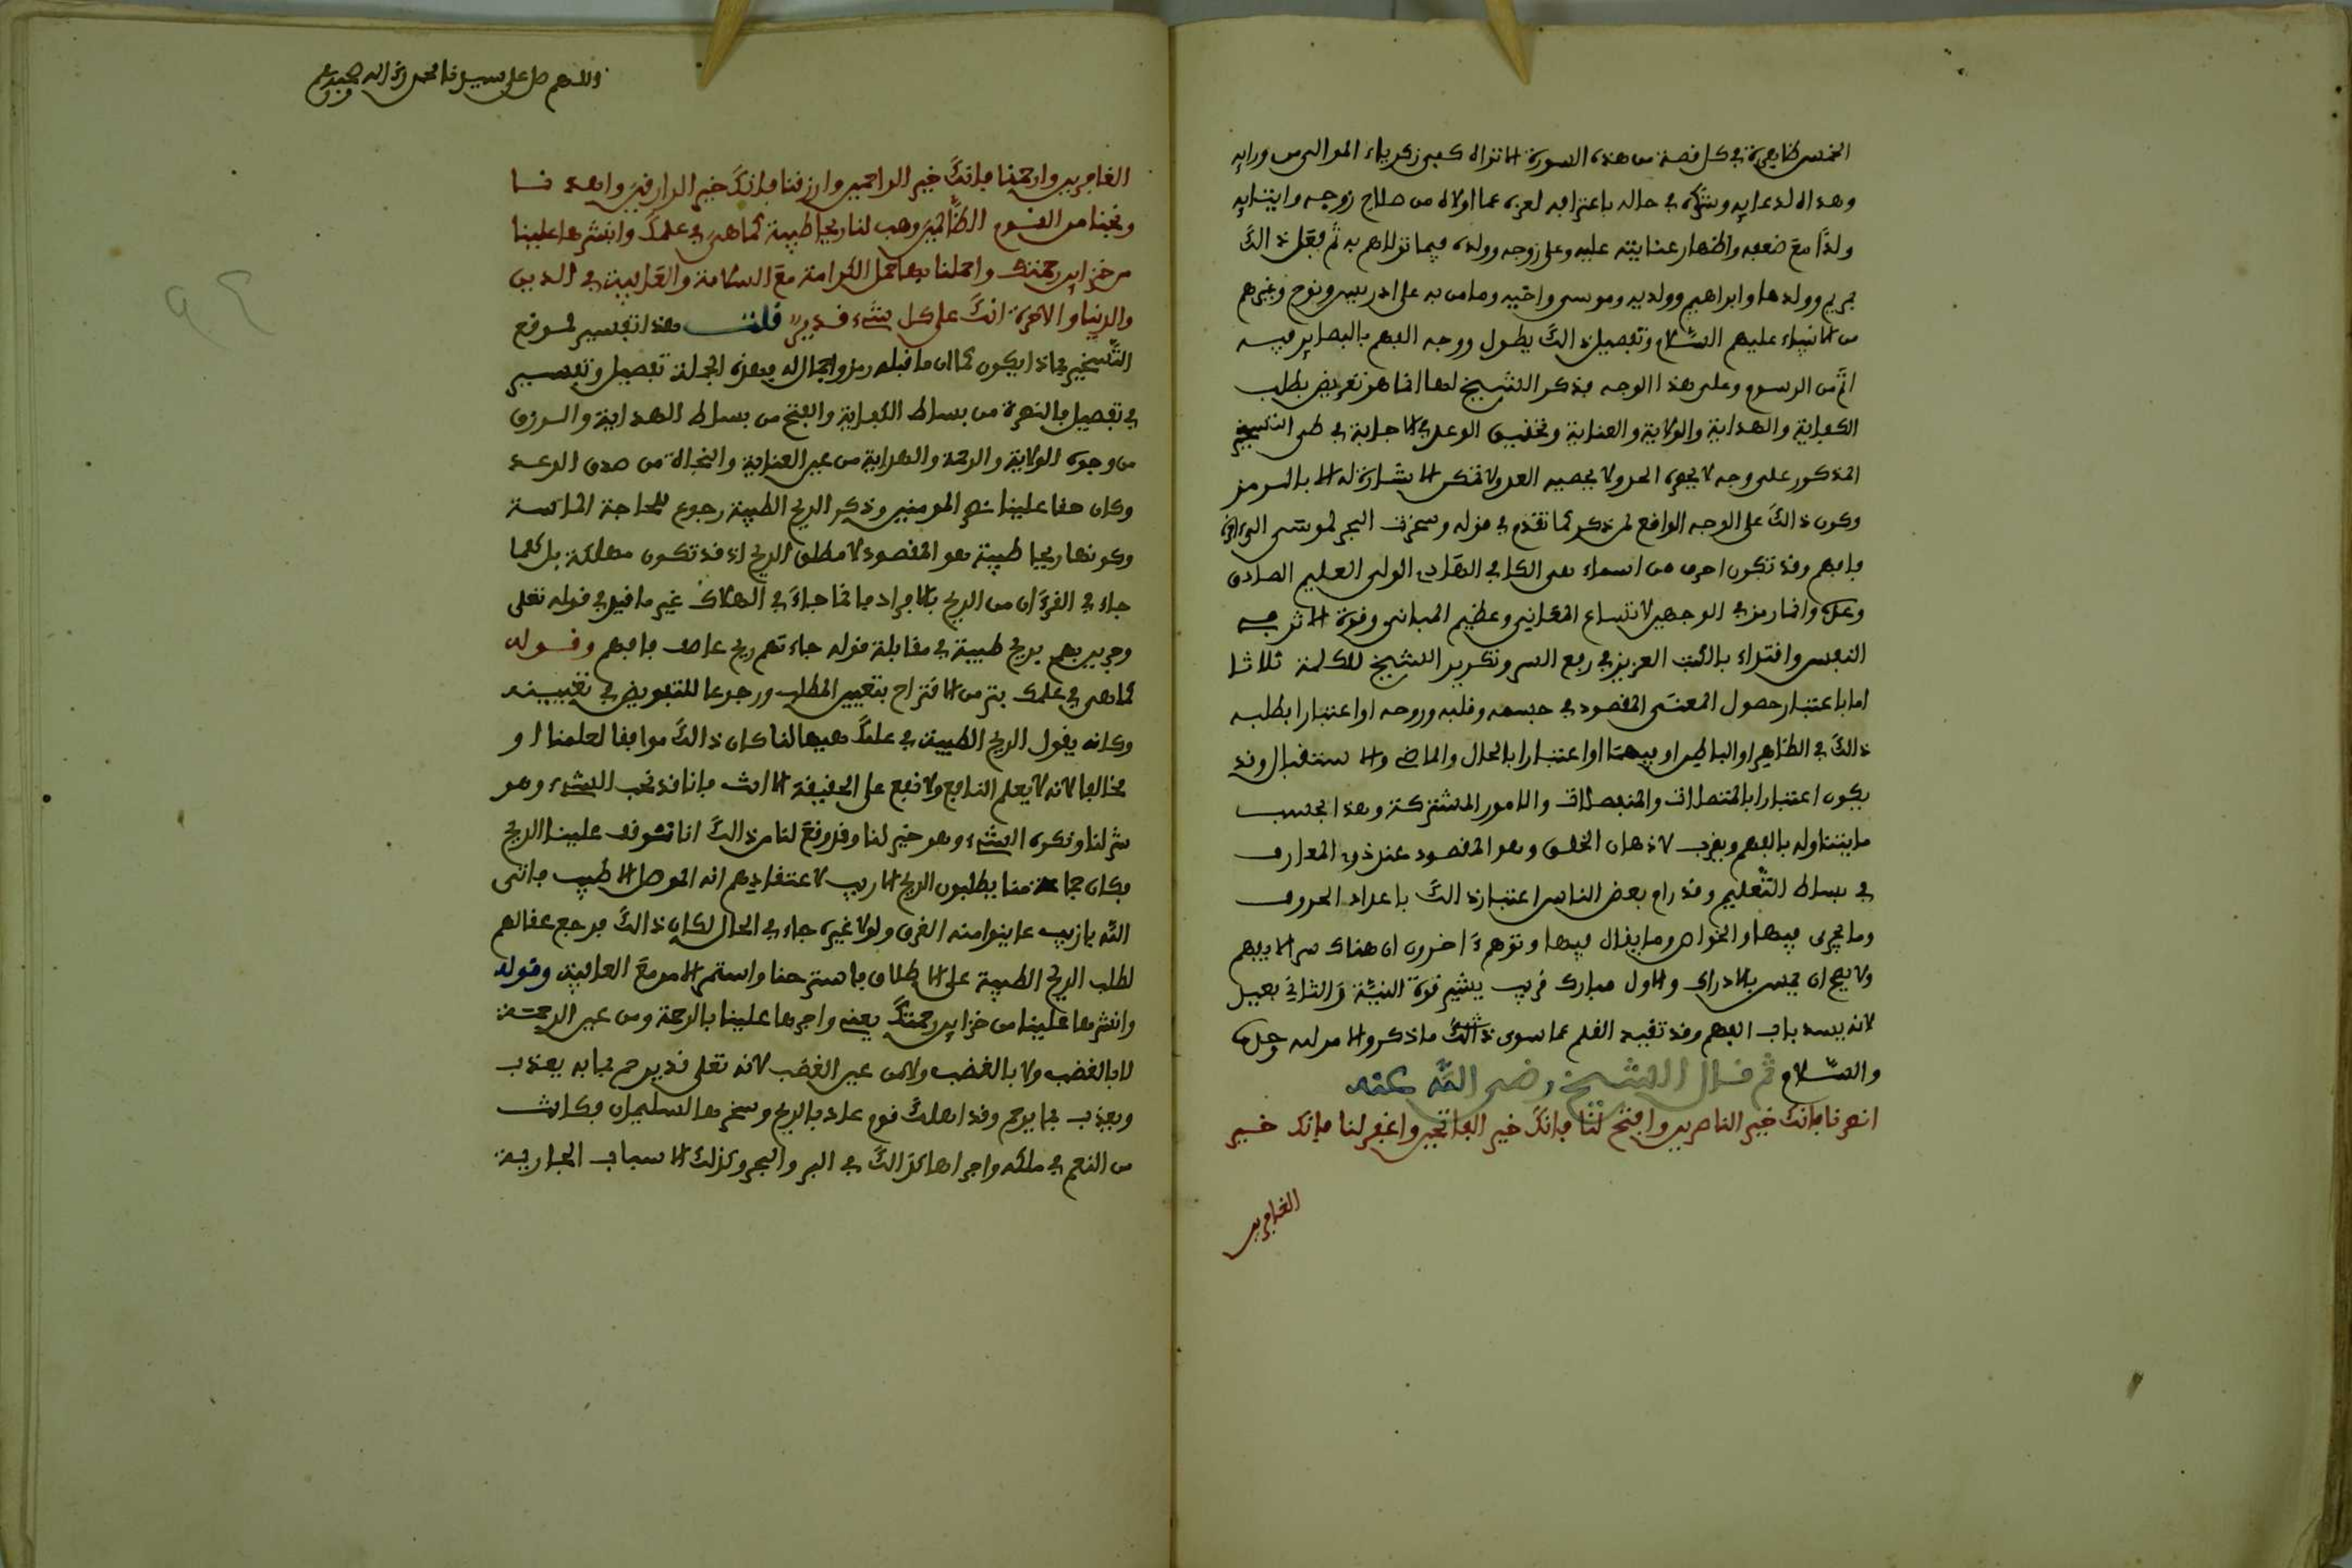 الخمس ظاهرة في كل قصة من هذه السورة الا تراه كفى زكرياء الموالى من ورايه
وهداه لدعايه وتولاه في حاله باعترافه لعزه عما اولاه من صلاح زوجه وايتايه
ولدا مع ضعفه واظهار عنايته عليه وعلى زوجه وولده فيما تولاهم به ثم فعل ذالك
بمريم وولدها وابراهيم وولديه وموسى واخيه وما من به على ادريس ونوح وغيرهم
من الانبياء عليهم السلام وتفصيل ذالك يطول ووجه الفهم بالبصاير فيه
اتم من الرسوم وعلى هذا الوجه فذكر الشيخ لها انما هو تعريض بطلب
الكفاية والهداية والولاية والعناية وتحقيق الوعد في الاجابة في طى التسخير
المذكور على وجه لا يحصره الحد ولا يحصيه العد ولا تمكن الاشارة له الا بالرمز
وكون ذالك على الوجه الواقع لمن ذكر كما تقدم في قوله وسخرت البحر لموسى الى اخره
فافهم وقد تكون احرف من اسماء هي الكافي الهادي الولى العليم الصادق
وعدل وانما رمز في الوجهين لاتساع المعاني وعظيم المبانى وقوة الاثر في
النفس واقتداء بالكتاب العزيز في ربع السر وتكرير الشيخ للكلمة ثلاثا
اما باعتبار حصول المعنى المقصود في جسمه وقلبه وروحه او اعتبارا بطلب
ذالك في الظاهر او الباطن او فيهما او اعتبارا بالحال والماضي والاستقبال وقد
يكون اعتبارا بالمتصلات والمنفصلات والامور المشتركة وهذا بحسب
ما يتناوله بالفهم ويقرب لاذهان الخلق وهو المقصود عند ذوي المعارف
في بساط التعليم وقد رام بعض الناس اعتبار ذالك باعداد الحروف
وما يجرى فيها والخواص وما يقال فيها وتوهم ءاخرون ان هناك سر الا يفهم
ولا يصح ان يمس بالادراك والاول مبارك قريب يشير قوة النية والثاني بعيد
لانه يسد باب الفهم وقد تقيد القلم عما سوى ذالك ما ذكر والامر لله وحده
والسلام ثم قال الشيخ رضي الله عنه
انصرنا فانك خير الناصرين وافتح لنا فانك خير الفاتحين واغفر لنا فانك خير
الغافرين
واللهم صل على سيدنا محمد وءاله وصحبه
الغافرين وارحمنا فانك خير الراحمين وارزقنا فانك خير الرازقين واهدنا
ونجنا من القوم الظالمين وهب لنا ريحا طيبة كما هي في علمك وانشرها علينا
من خزاين رحمتك واحملنا بها حمل الكرامة مع السلامة والعافية في الدين
والدنيا والاخرة انك على كل شيء قدير قلت هذا تفسير لموقع
التسخير بماذا يكون كما ان ما قبله رمز واجمال له فهذه الجملة تفصيل وتفسير
في تفصيل فالنصرة من بساط الكفاية والفتح من بساط الهداية والرزق
من وجوه الولاية والرحمة والهداية من عين العناية والنجاة من صدق الوعد
وكان حقا علينا نصر المومنين وذكر الريح الطيبة رجوع للحاجة الماسة
وكونها ريحا طيبة هو المقصود لا مطلق الريح اذ قد تكون مهلكة بل كلما
جاء في القرءان من الريح بالافراد فانما جاء في الهلاك غير ما قيل في قوله تعلى
وجرين بهم بريح طيبة في مقابلة قوله جاءتهم ريح عاصف فافهم وقوله
كما هي في علمك بتر من الاقتراح بتعيين المطلب ورجوعا للتفويض في تغييبه
وكانه يقول الريح الطيبة في علمك هبها لنا كان ذالك موافقا لعلمنا او
مخالفا لانه لا يعلم النافع ولا نفع على الحقيقة الا انت فانا قد نحب الشيء وهو
شر لنا ونكره الشيء وهو خير لنا وقد وقع لنا من ذالك انا توقف علينا الريح
فكان جماعة منا يطلبون الريح الازيب لاعتقادهم انه الموصل الاطيب فاتى
الله بازيب عاينوا منه الغرق ولولا غيره جاء في الحال لكان ذالك فرجع عقالهم
لطلب الريح الطيبة على الاطلاق فاسترحنا واستمر الامر مع العافية وقوله
وانشرها علينا من خزاين رحمتك يعني واجرها علينا بالرحمة ومن عين الرحمة
لا بالغضب ولا بالغضب ولا من عين الغضب لانه تعلى قد يرحم بما به يعذب
ويعذب بما يرحم وقد اهلك قوم عاد بالريح وسخرها لسليمان فكانت
من النعم في ملكه واجراها كذالك في البر والبحر وكذلك الاسباب الجارية